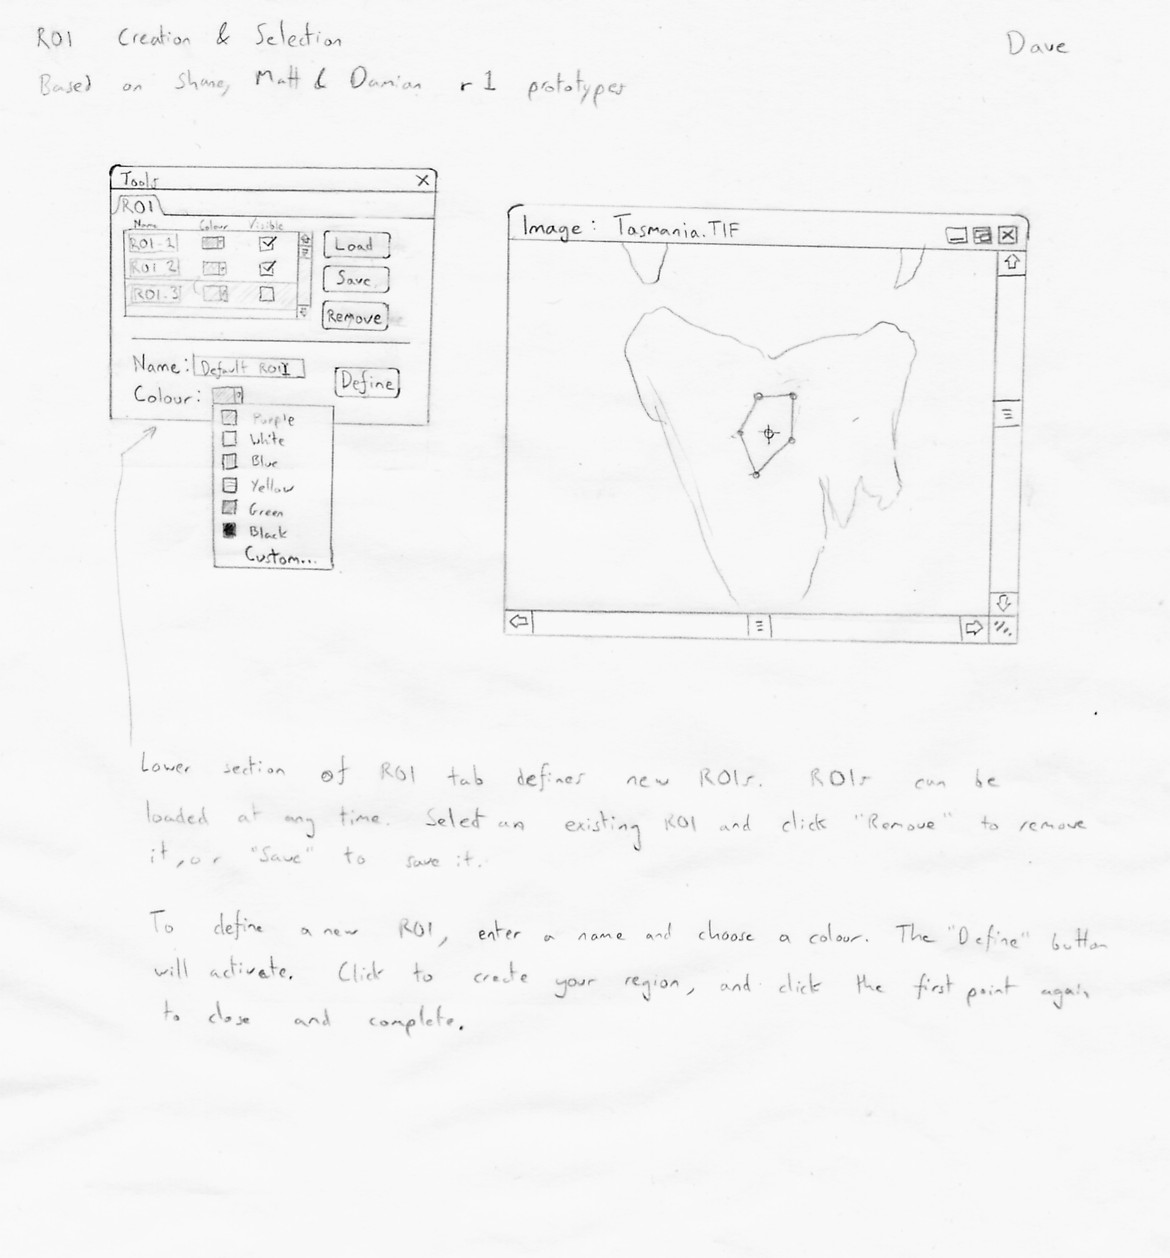 ROI Creation & Selection
Dave
Based on Shane, Matt & Damian r1 prototypes
Tools
ROI
Name Colour Visible
ROI-1
ROI 2
ROI.3
Load
Save
Remove
Name: Default ROI1
Define
Colour:
Purple
White
Blue
Yellow
Green
Black
Custom...
Image: Tasmania.TIF
Lower section of ROI tab defines new ROIs. ROIs can be
loaded at any time. Select an existing ROI and click "Remove" to remove
it, or "Save" to save it.
To define a new ROI, enter a name and choose a colour. The "Define" button
will activate. Click to create your region, and click the first point again
to close and complete.